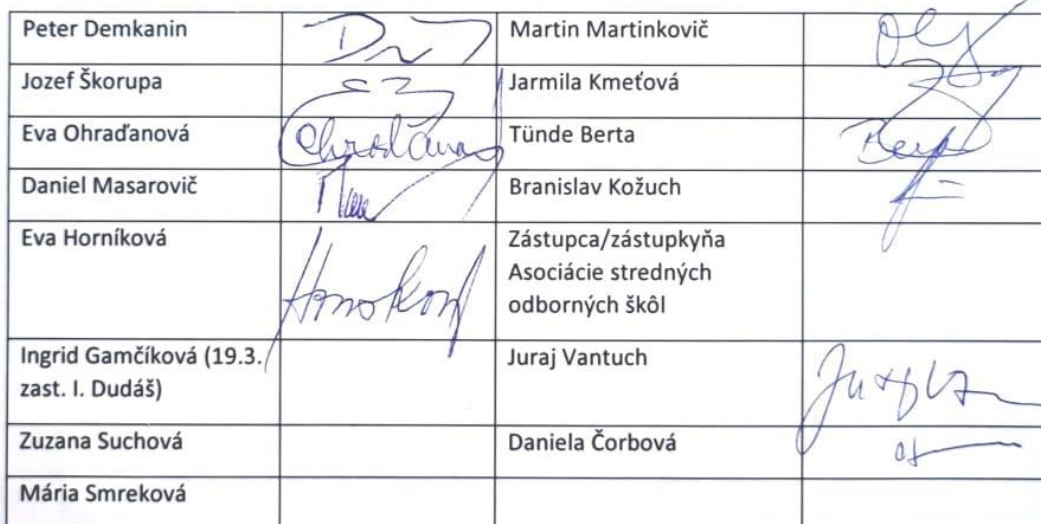 Peter Demkanin
Martin Martinkovič
Jozef Škorupa
Jarmila Kmeťová
Eva Ohraďanová
Tünde Berta
Daniel Masarovič
Branislav Kožuch
Eva Horníková
Zástupca/zástupkyňa
Asociácie stredných
odborných škôl
Ingrid Gamčíková (19.3.
zast. I. Dudáš)
Juraj Vantuch
Zuzana Suchová
Daniela Čorbová
Mária Smreková